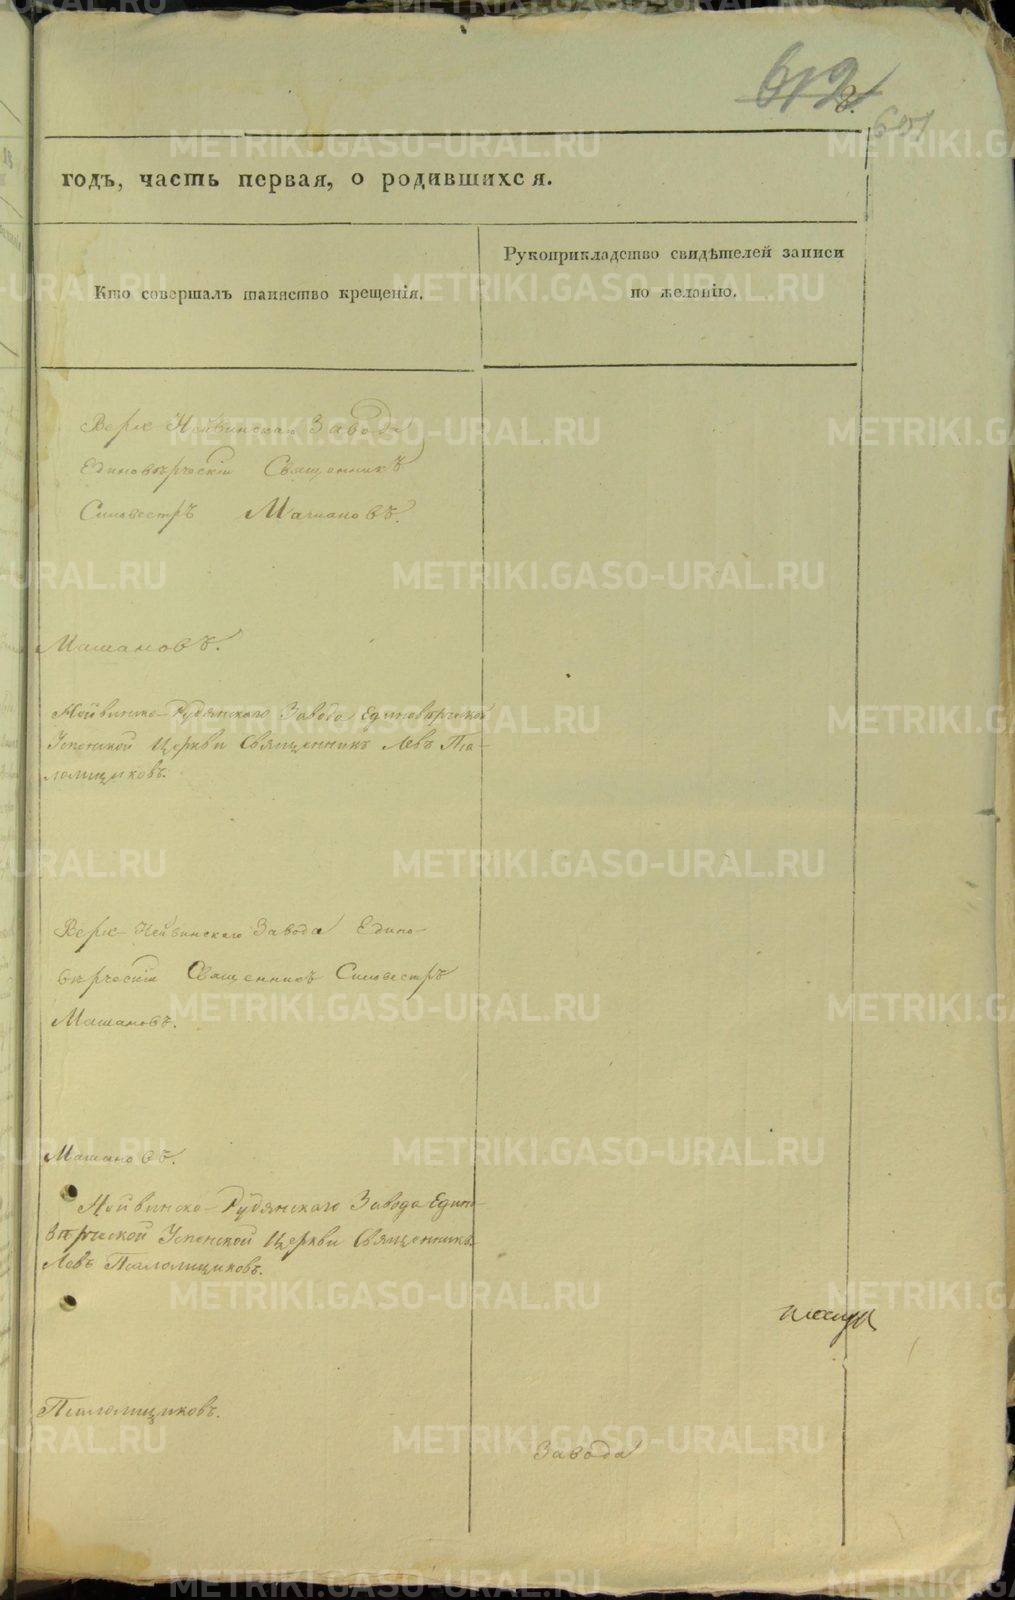 612
годъ, часть первая, о родившихся.
Кто совершалъ таинство крещенія.
Рукоприкладство свидѣтелей записи
по желанію.
Верх-Нейвинскаго Завода
Единовѣрческій Священникъ
Силвестръ Машановъ.
Машановъ.
Нейвинско-Рудянскаго Завода Единовѣрческой
Успенской Церкви Священникъ Левъ Пса-
ломщиковъ.
Верх-Нейвинскаго Завода Едино-
вѣрческій Священникъ Силвестръ
Машановъ.
Машановъ.
Нейвинско-Рудянскаго Завода Едино-
вѣрческой Успенской Церкви Священникъ
Левъ Псаломщиковъ.
Псаломщиковъ.
Завода
METRIKI.GASO-URAL.RU